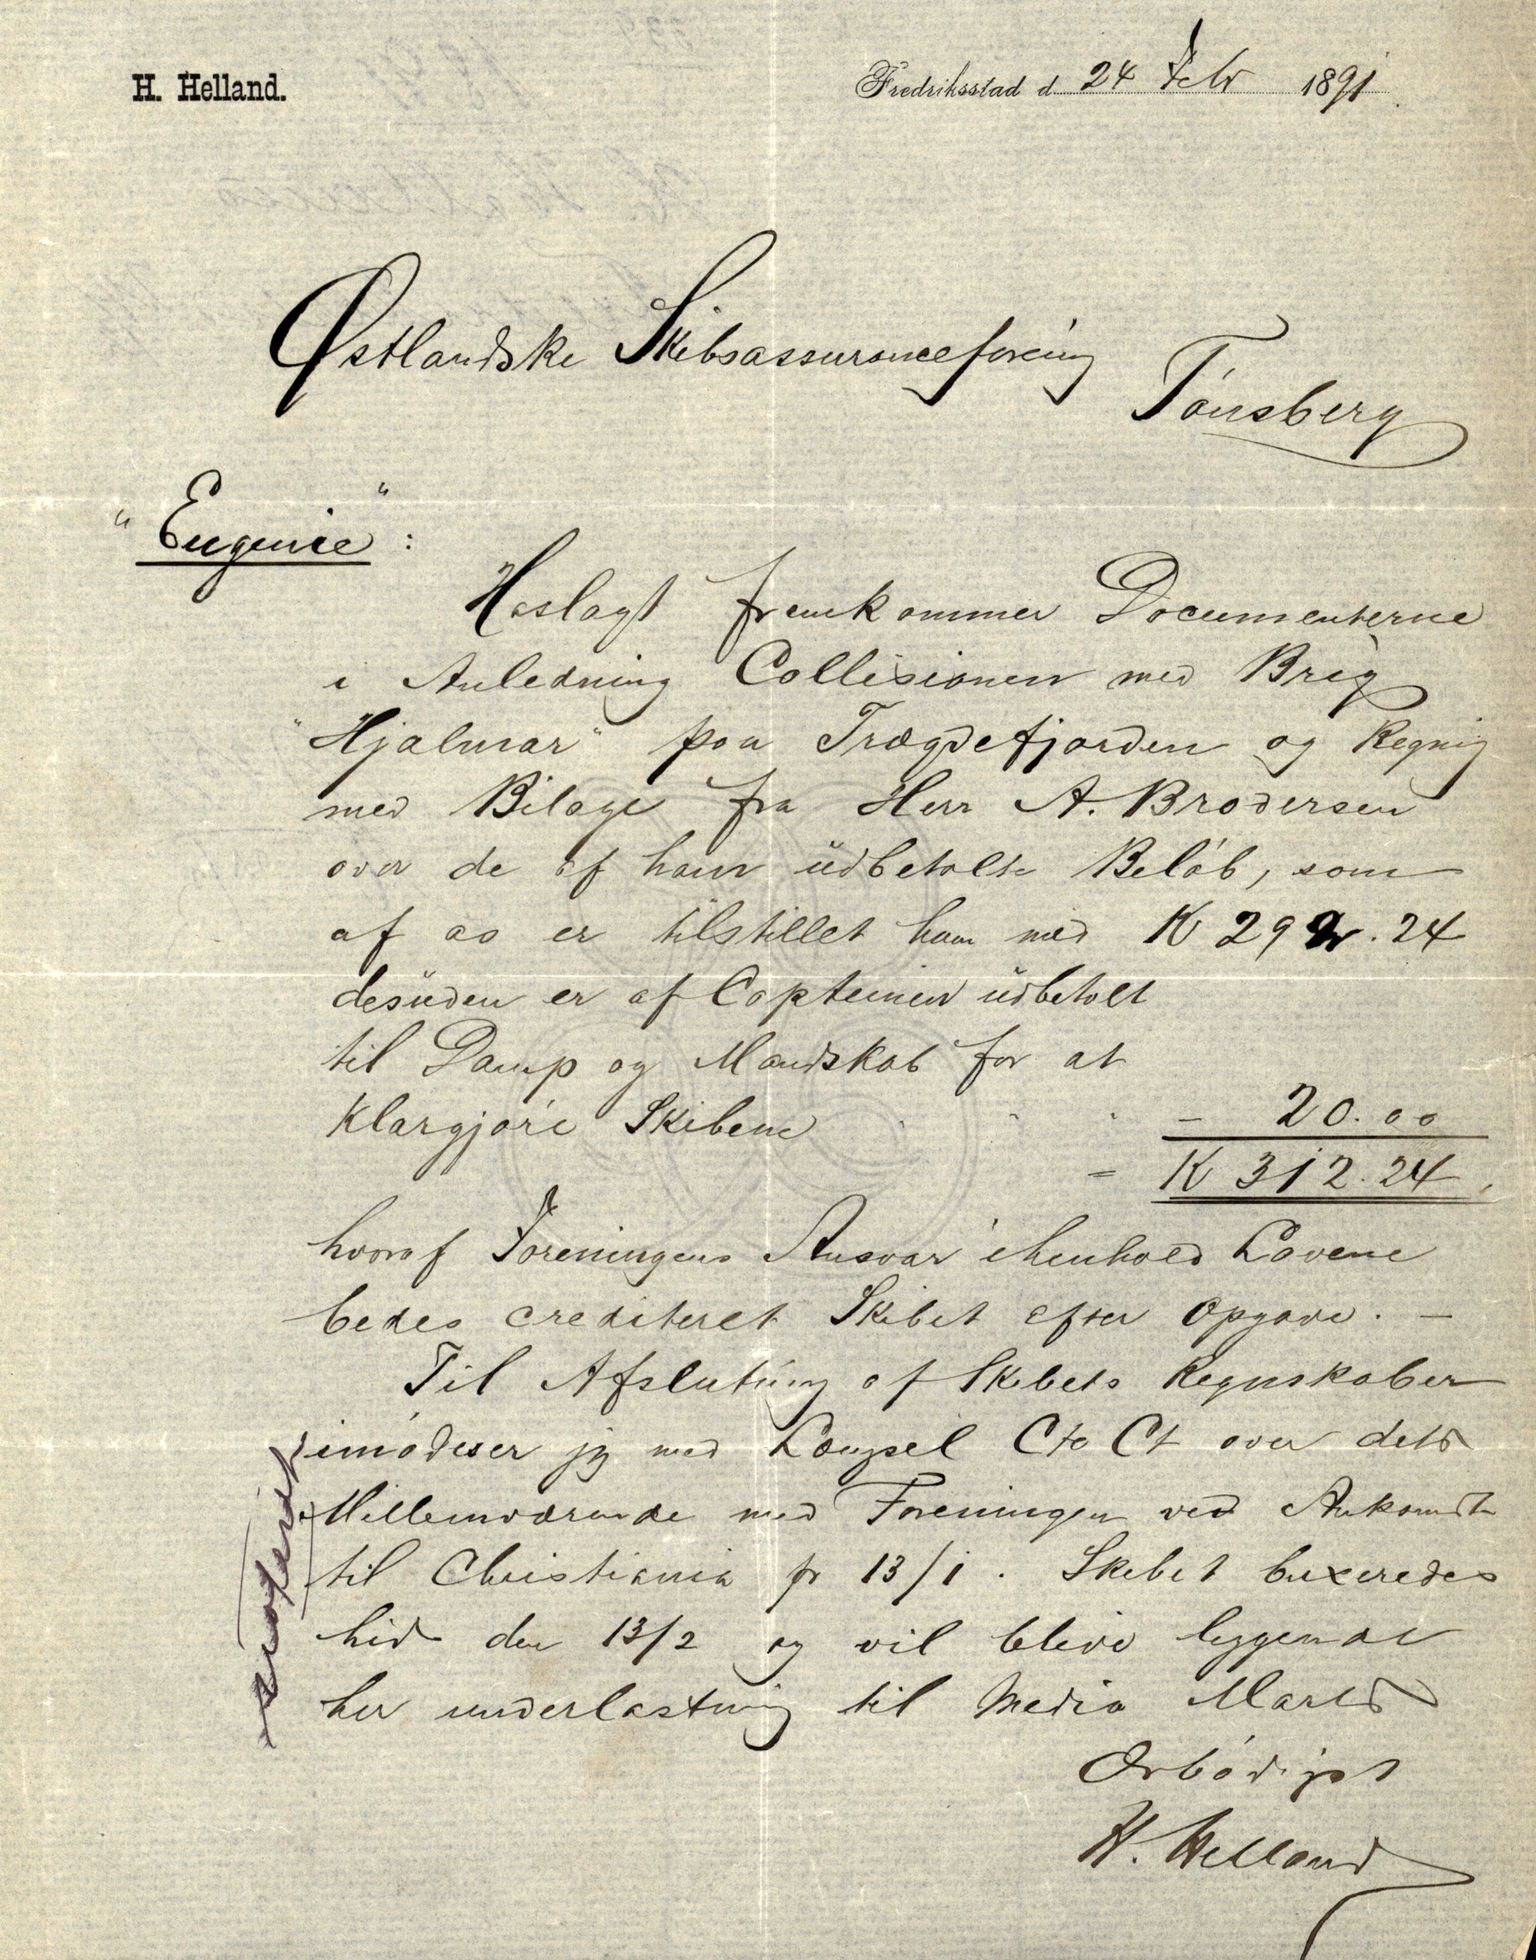 H. Helland.
Fredriksstad d. 24 Febr 1891
Østlandske Skibsassuranceforening
Tønsberg
"Eugenie":
Hoslagt fremkommer Documenterne
i Anledning Collisionen med Brig
"Hjalmar" paa Trægdefjorden og Regnig
med Bilage fra Herr A. Brodersen
over de af ham udbetalte Beløb, som
af os er tilstillet ham med K 292.24
desuden er af Capteinen udbetalt
til Damp og Mandskab for at
Klargjøre Skibene . . . - 20.00
= K 312.24
hvoraf Foreningens Ansvar ihenhold Lovene
bedes crediteret Skibet efter Opgave. -
Til Afslutning af Skibets Regnskaber
imødeser jeg med Længsel Cto Ct over dets
Mellemværende med Foreningen ved Ankomst
til Christiania pr 13/1. Skibet buxeredes
hid den 13/2 og vil blive liggende
her underlastning til Media Marts
Ærbødigst
H. Helland